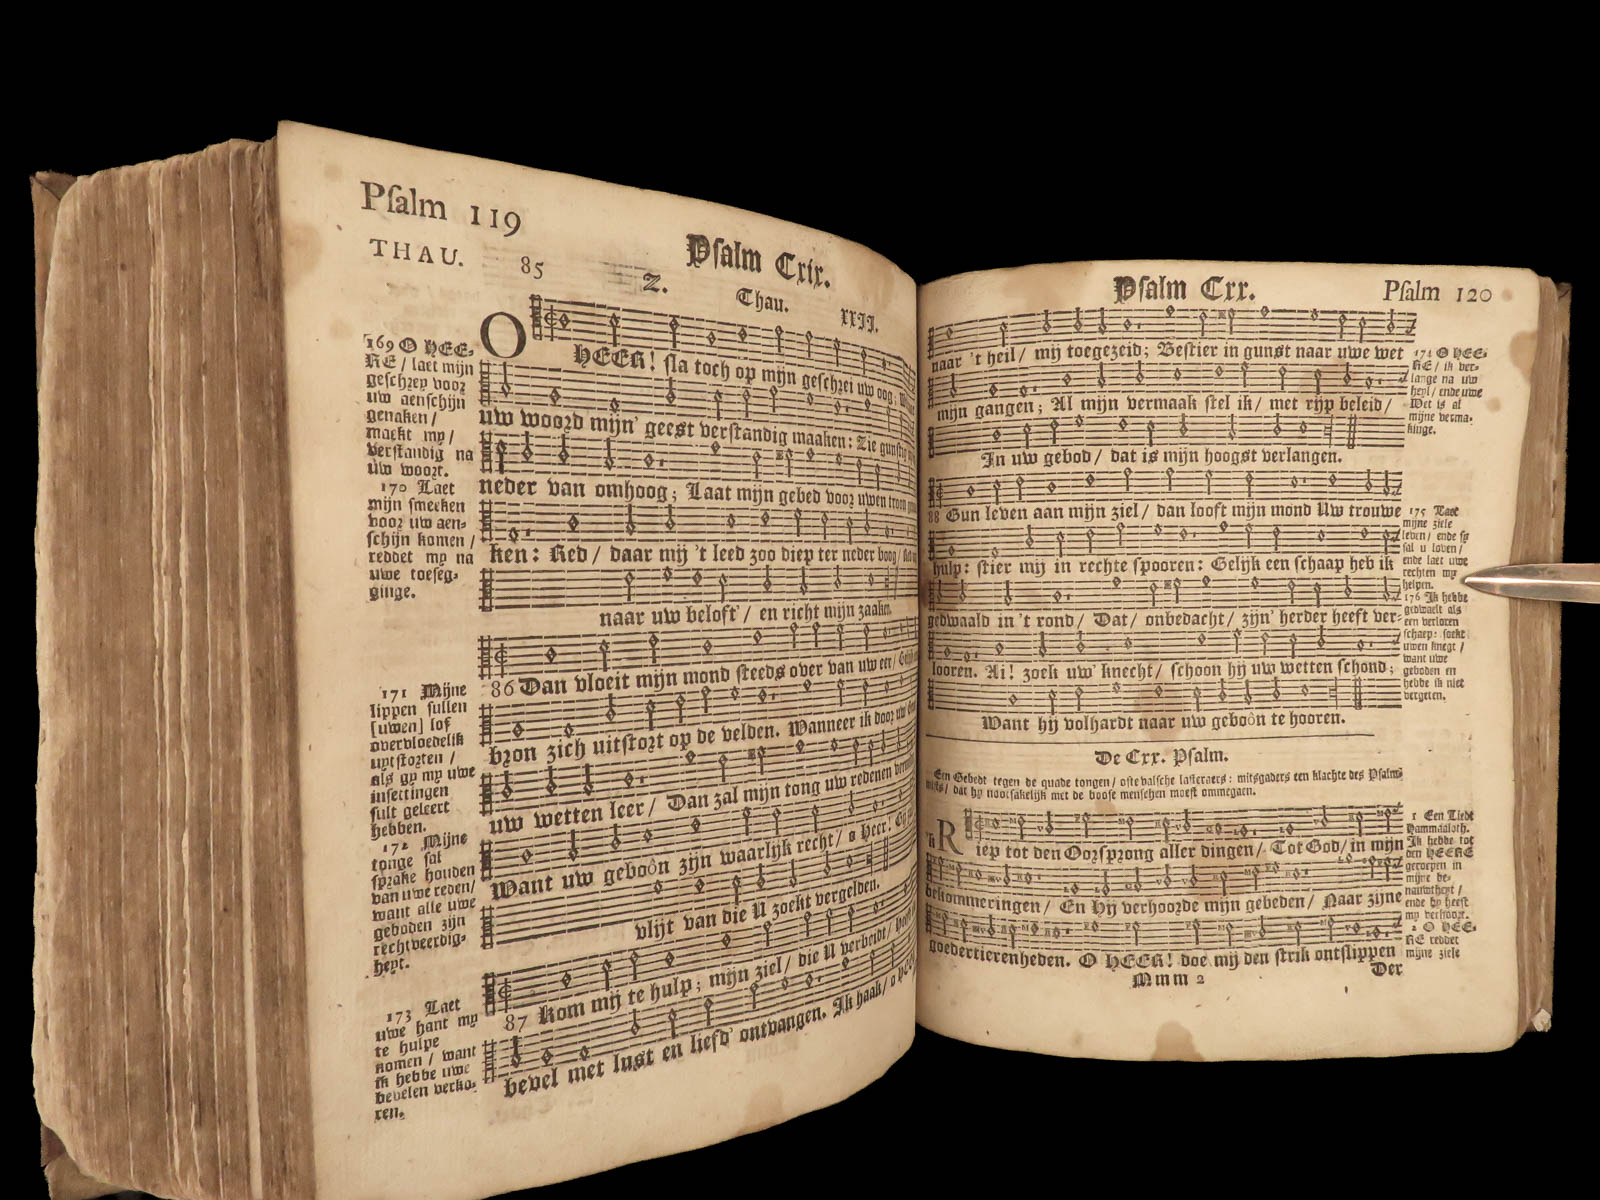 Psalm 119
THAU.
85
Psalm Cxix.
Z.
Thau.
XXII.
169 O HEE-
RE / laet mijn
geschrey voor
uw aenschijn
genaken /
maekt my /
verstandig na
uw woort.
170 Laet
mijn smeeken
voor uw aen-
schijn komen /
reddet my na
uwe toeseg-
ginge.
171 Mijne
lippen sullen
[uwen] lof
overvloedelik
uytstorten /
als gy my uwe
insettingen
sult geleert
hebben.
172 Mijne
tonge sal
sprake houden
van uwe reden /
want alle uwe
geboden zijn
rechtveerdig-
heyt.
173 Laet
uwe hant my
te hulpe
komen / want
ik hebbe uwe
bevelen verko-
ren.
O HEER! sla toch op mijn geschrei uw oog;
uw woord mijn' geest verstandig maaken: Zie gunstig
neder van omhoog; Laat mijn gebed voor uwen troon
ken: Red / daar mij 't leed zoo diep ter neder boog /
naar uw beloft' / en richt mijn zaaken.
86 Dan vloeit mijn mond steeds over van uw eer /
bron zich uitstort op de velden. Wanneer ik door uw
uw wetten leer / Dan zal mijn tong uw redenen
Want uw geboôn zijn waarlijk recht / o Heer!
vlijt van die U zoekt vergelden.
87 Kom mij te hulp; mijn ziel / die U verbeidt /
bevel met lust en liefd' ontvangen. Ik haak /
Psalm Cxx.
Psalm 120
naar 't heil / mij toegezeid; Bestier in gunst naar uwe wet
mijn gangen; Al mijn vermaak stel ik / met rijp beleid /
In uw gebod / dat is mijn hoogst verlangen.
88 Gun leven aan mijn ziel / dan looft mijn mond Uw trouwe
hulp: stier mij in rechte spooren: Gelijk een schaap heb ik
gedwaald in 't rond / Dat / onbedacht / zijn' herder heeft ver-
looren. Ai! zoek uw' knecht / schoon hij uw wetten schond;
Want hij volhardt naar uw geboôn te hooren.
174 O HEE-
RE / ik ver-
lange na uw
heyl / ende uwe
Wet is al
mijne verma-
kinge.
175 Laet
mijne ziele
leven / ende sy
sal u loven /
ende laet uwe
rechten my
helpen.
176 Ik hebbe
gedwaelt als
een verloren
schaep: soekt
uwen knegt /
want uwe
geboden en
hebbe ik niet
vergeten.
De Cxx. Psalm.
Een Gebedt tegen de quade tongen / ofte valsche lasteraers: mitsgaders een klachte des Psalm-
mists / dat hy nootsakelijk met de boose menschen moest ommegaen.
'k Riep tot den Oorsprong aller dingen / Tot God / in mijn
bekommeringen / En Hij verhoorde mijn gebeden / Naar zijne
goedertierenheden. O HEER! doe mij den strik ontslippen
1 Een Liedt
Hammaaloth.
Ik hebbe tot
den HEERE
geroepen in
mijne be-
nauwtheyt /
ende hy heeft
my verhoort.
2 O HEE-
RE reddet
mijne ziele
Mmm 2
Der